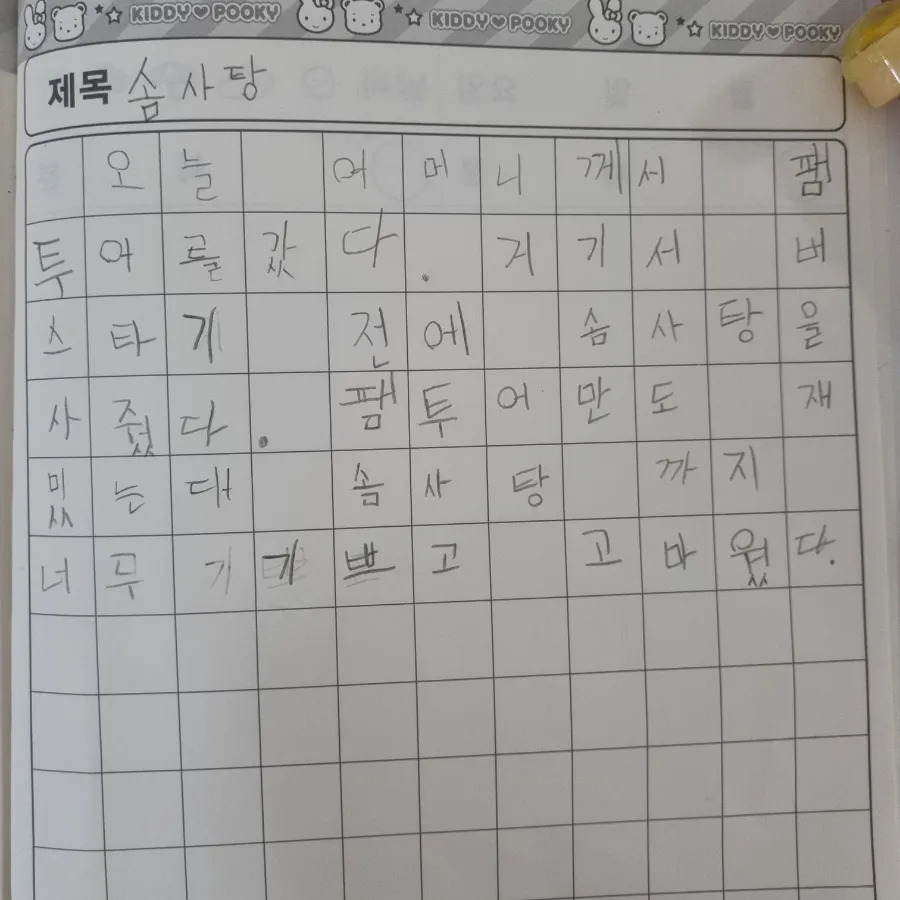 KIDDY♥POOKY KIDDY♥POOKY KIDDY♥POOKY
제목 솜사탕
오늘 어머니께서 팸
투어를갔다. 거기서 버
스타기 전에 솜사탕을
사줬다. 팸투어만도 재
밌는대 솜사탕 까지
너무 기쁘고 고마웠다.